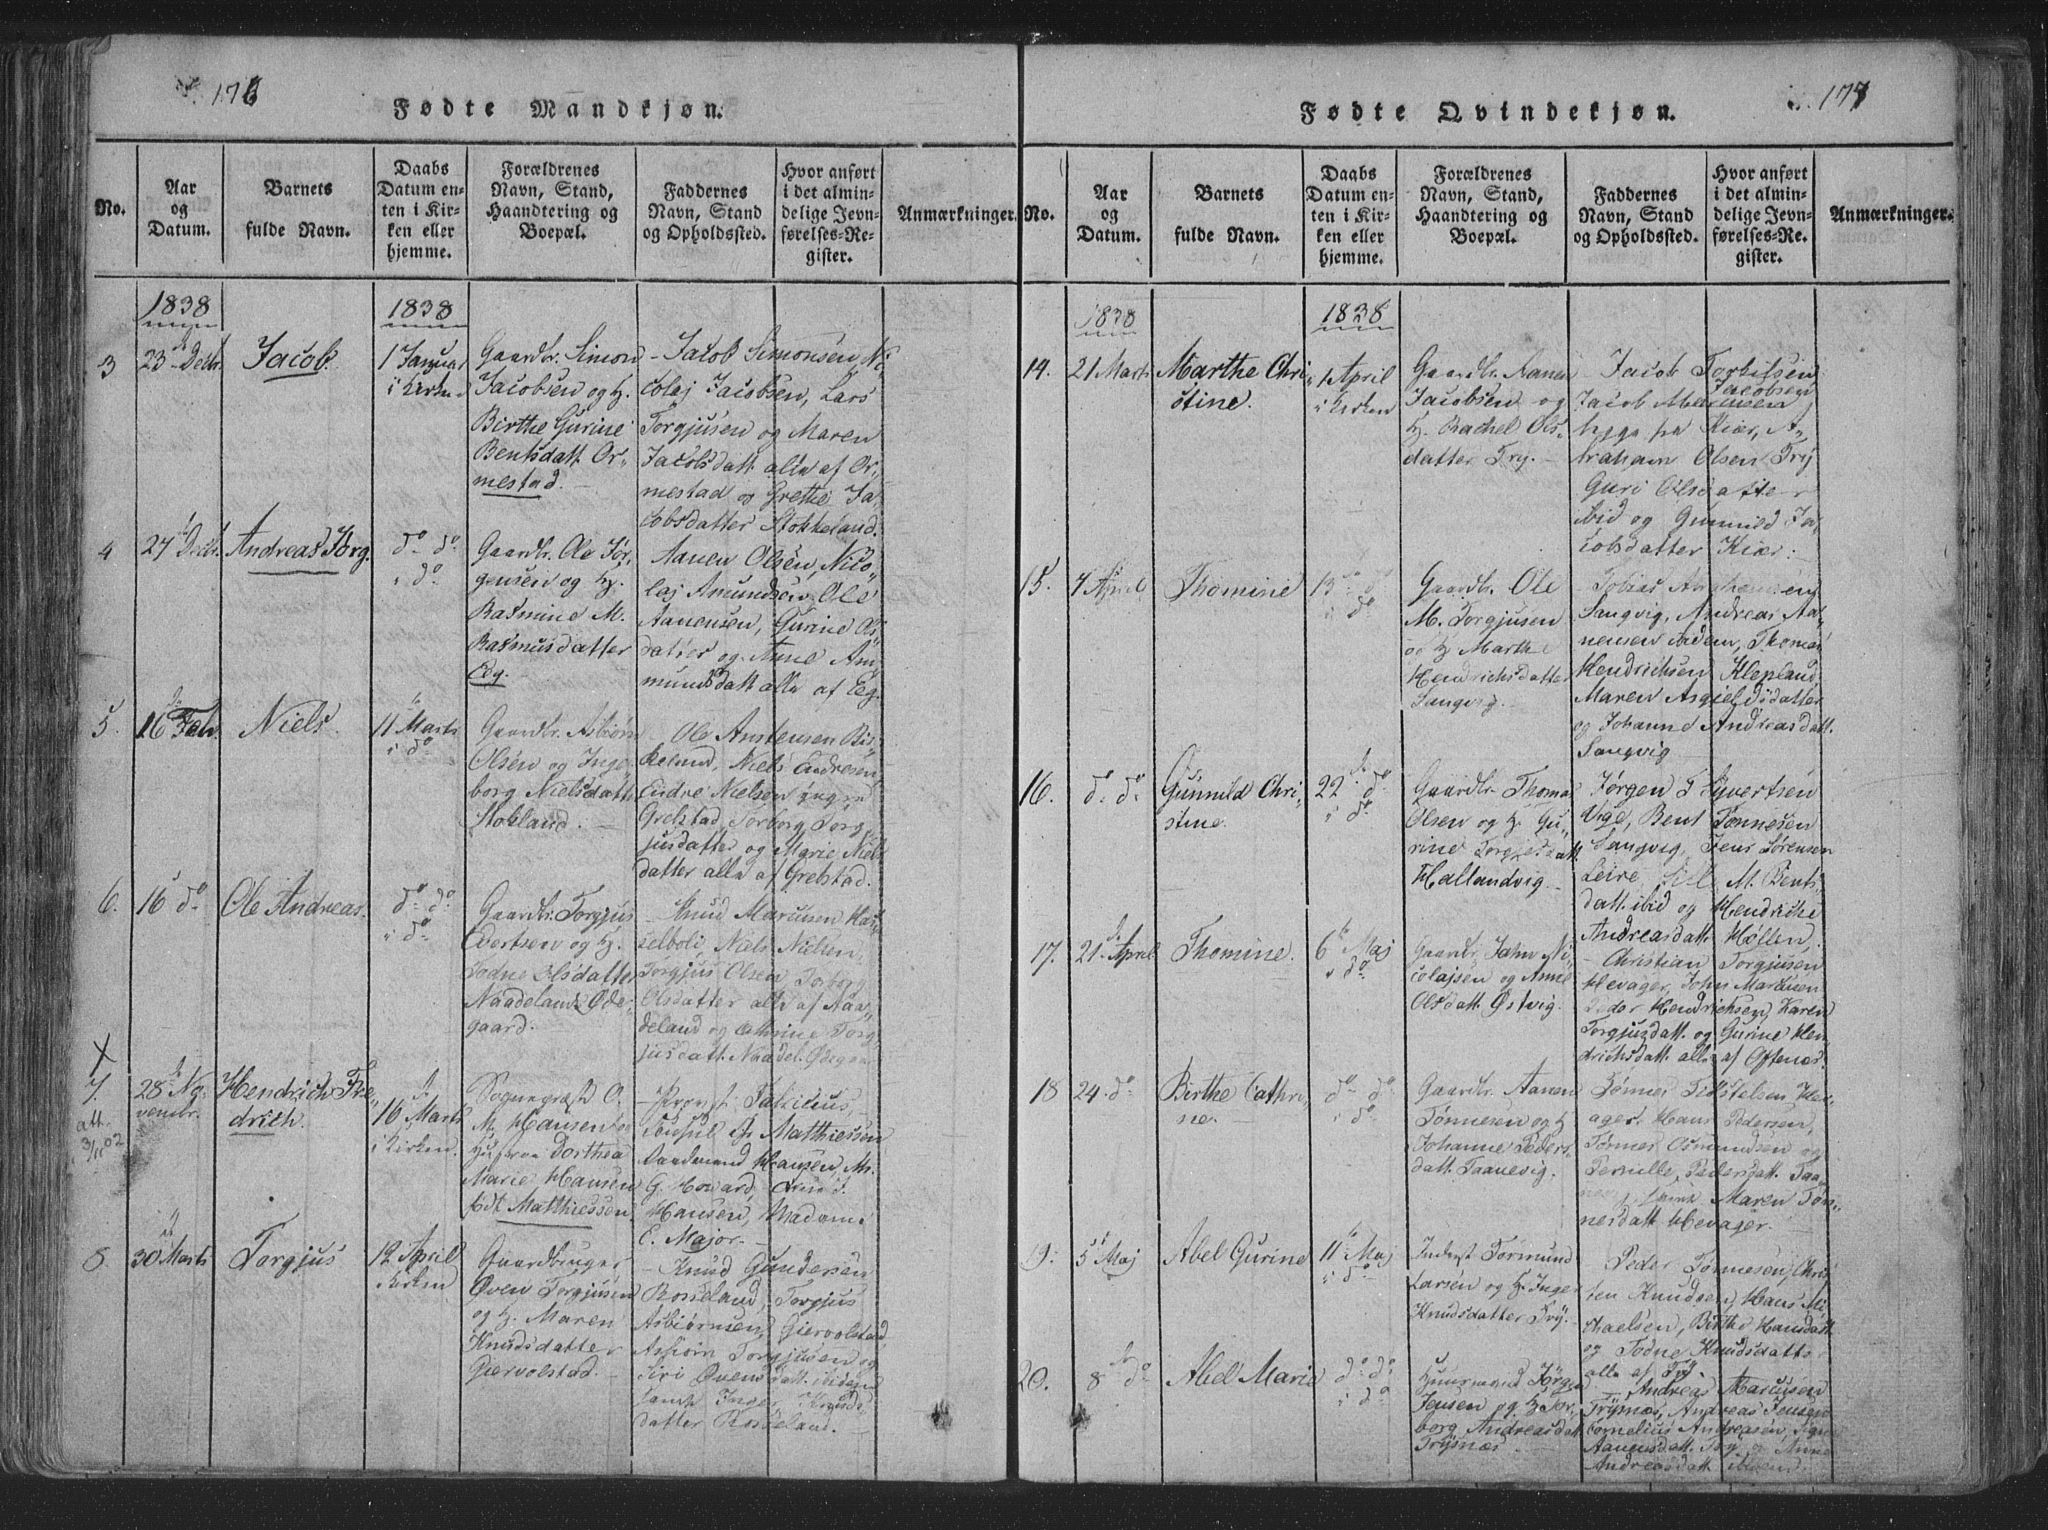 176
Fødte Mandkjøn.
No.
Aar
og
Datum.
Barnets
fulde Navn.
Daabs
Datum en-
ten i Kir-
ken eller
hjemme.
Forældrenes
Navn, Stand,
Haandtering og
Boepæl.
Faddernes
Navn, Stand
og Opholdssted.
Hvor anført
i det almin-
delige Jevn-
førelses-Re-
gister.
Anmærkninger.
1838
1838
3
23 Decbr.
Jacob.
1 Januar
i Kirken
Gaardbr. Simon
Jacobsen og H.
Birthe Gurine
Bentsdatt. Or-
mestad.
Jacob Simonsen, Ni-
colaj Jacobsen, Lars
Torgjusen og Maren
Jacobsdatt. alle af Or-
mestad og Grethe Ja-
cobsdatter Stokkeland.
4
27 Decbr.
Andreas Jørg.
do do
i do
Gaardbr. Ole Jør-
gensen og H.
Rasmine M.
Rasmusdatter
Eeg.
Aanen Olsen, Nico-
laj Amundsen, Ole
Aanensen, Gurine Ols-
datter og Anne Am-
mundsdatt. alle af Eeg.
5.
16 Febr.
Niels.
11 Marts
i do
Gaardbr. Asbiørn
Olsen og Inge-
borg Nielsdatt.
Stokland.
Ole Anstensen Bir-
keland, Niels Endresen,
Endre Nielsen
Grelstad, Torborg Torg-
jusdatter og Marie Niels-
datter alle af Grelstad.
6.
16 do
Ole Andreas.
do do
i do
Gaardbr. Torgjus
Evertsen og H.
Todne Olsdatter
Naadeland Øde-
gaard.
Knud Marcusen
Niels Nielsen,
Torgjus Olsen, Torborg
Olsdatter alle af Naa-
deland og Cathrine Torg-
jusdatt. Naadel. Ødegaard
X
7.
att.
3/11 02
28 No-
vembr.
Hendrich Fre-
drich.
16 Marts
i Kirken.
Sognepræst O.
M. Hansen og
Hustrue Dorthea
Marie Hansen
født Matthiessen.
Provst Fabricius,
Consul J. Matthiessen
Hansen, Mr.
G. Howard,
Hansen, Madame
E. Major.
8.
30 Marts
Torgjus
12 April
i Kirken
Gaardbruger
Øven Torgjusen
og H. Maren
Knudsdatter
Giervolstad.
Knud Gundersen
Rosseland, Torgjus
Asbiørnsen, Giervolstad
Asbiørn Torgjusen og
Siri Øvensdatt. ibidem
samt Inger Knuds-
datter Rosseland.
177
Fødte Qvindekjøn.
No.
Aar
og
Datum.
Barnets
fulde Navn.
Daabs
Datum en-
ten i Kir-
ken eller
hjemme.
Forældrenes
Navn, Stand,
Haandtering og
Boepæl.
Faddernes
Navn, Stand
og Opholdssted.
Hvor anført
i det almin-
delige Jevn-
førelses-Re-
gister.
Anmærkninger.
1838
1838
14.
21 Marts
Marthe Chri-
stine.
1 April
i Kirken
Gaardbr. Aanen
Jacobsen og
H. Rachel Ols-
datter Try.
Jacob Torbiesen
Jacobsen
Jacob
begge fra Kier, A-
braham Olsen Try
Guri Olsdatter
ibid og Gunnild Ja-
cobsdatter Kier.
15.
4 April
Thomine
13 do
i do
Gaardbr. Ole
M. Torgjusen
og H. Marthe
Hendrichsdatter
Sangvig.
Tobias
Sangvig, Andreas Aa-
nensen Thomas
Hendrichsen Klepland
Maren Asgieldsdatter
og Johanne Andreasdatt.
Sangvig
16.
do do
Gunnild Chri-
stine.
22 do
i do
Gaardbr. Thomas
Olsen og H. Gu-
rine Torgiersdatt.
Hallandvig.
Jørgen T. Syvertsen
Vige, Bent Tønnesen
Sangvig, Jens Sørensen
Leire, M. Bents-
datt. ibid og Hendriche
Andreasdatt. Høllen.
17.
21 April
Thomine.
6 Maj
i do
Gaardbr. Jahn Ni-
colajsen og Anne
Olsdatt. Østvig.
Christian Torgjusen
Hevager, John Marcusen
Peder Hendrichsen, Karen
Torgjusdatt. og Gurine Hen-
drichsdatt. alle af Oftenæs.
18
24 do
Birthe Cathri-
ne.
do do
i do
Gaardbr. Aanen
Tønnesen og H.
Johanne Peders-
datt. Taanevig.
Tønnes Tidstelsen He-
vager, Hans Pedersen,
Tønnes Osmundsen og
Pernille Pedersdatt. Taa-
samt Maren Tøn-
nesdatt. Hevager.
19.
5 Maj
Abel Gurine
11 Maj
i do
Inderst Tormund
Larsen og H. Inger
Knudsdatter Try.
Peder Tønnesen, Chri-
sten Knudsen, Hans Mi-
chaelsen, Birthe Hansdatt.
og Todne Knudsdatter
alle af Try.
20.
8 do
Abel Marie
do do
i do
Huusmand Jørgen
Jensen og H. Tor-
borg Andreasdatt.
Trysnæs.
Andreas Marcusen
Trysnæs, Andreas Jensen,
Cornelius Andreasen, Signe
Aanensdatt. Try og Anne
Andreasdatt. ibidem.